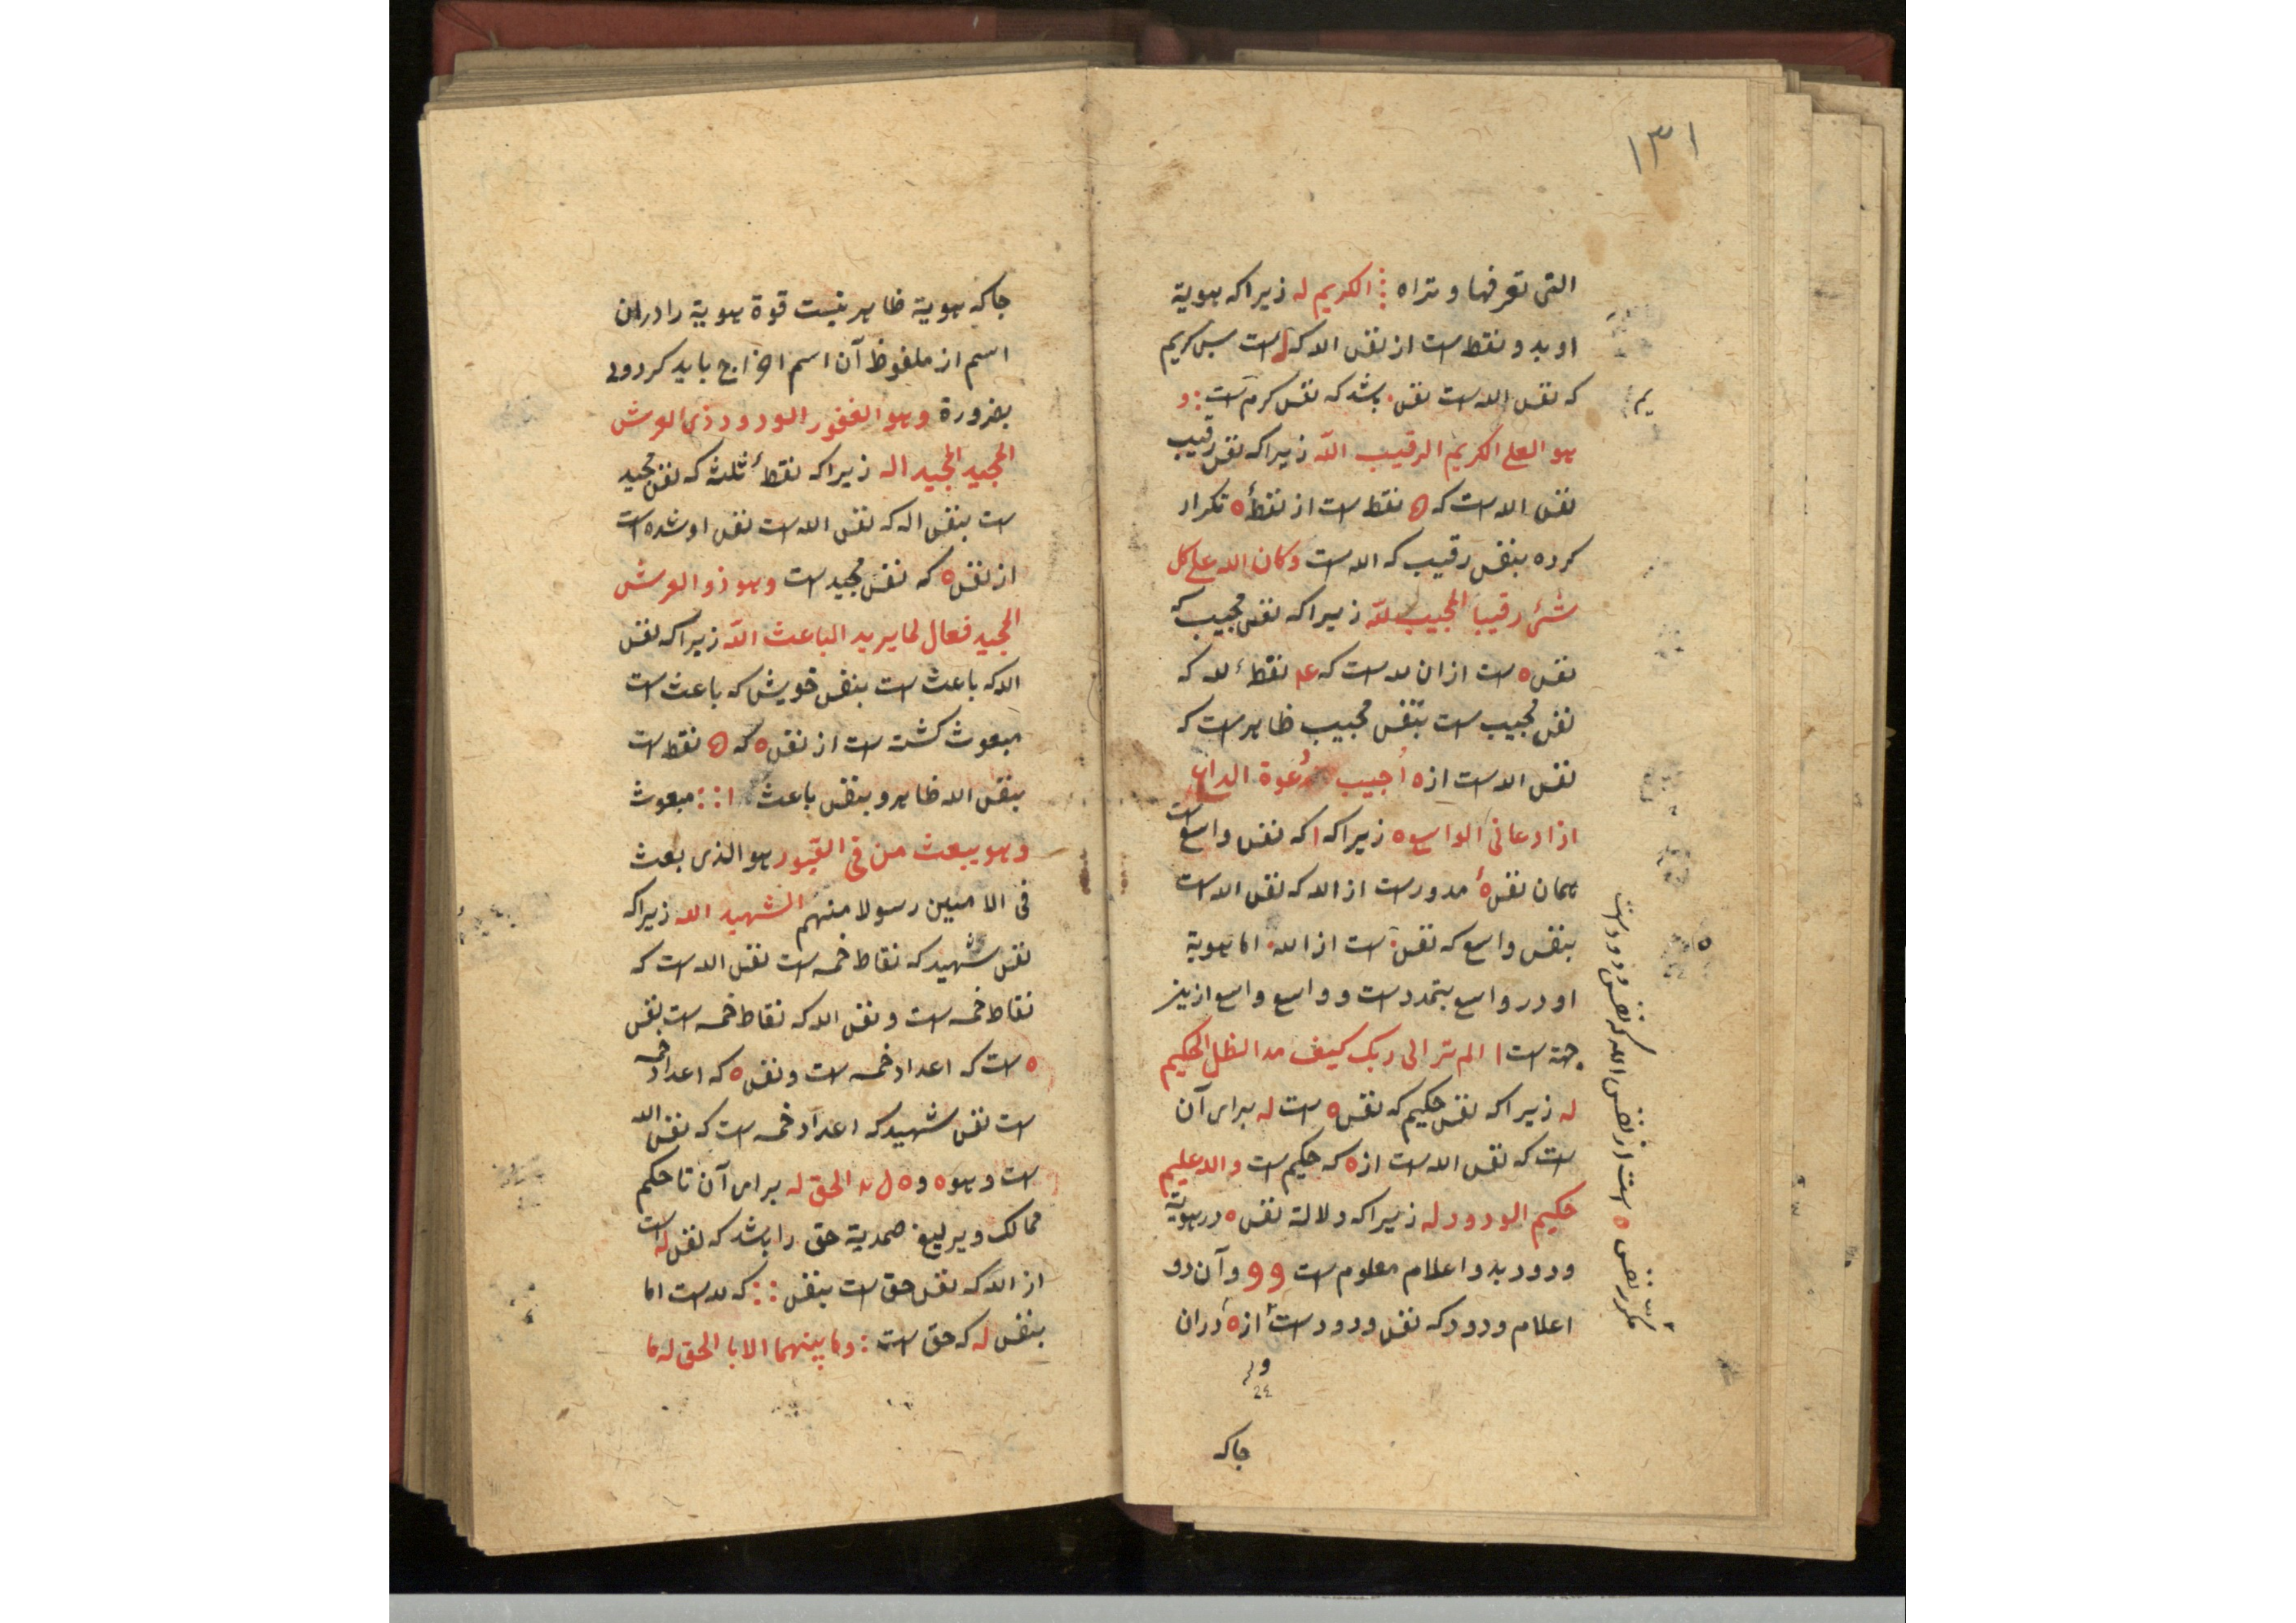 ۱۳۱
التی تعرفها و تراه ⁝ الکریم له زیرا که هویة
او بدو نقط است از نقش الله که له است پس کریم
که نقش الله است نقش. باشد که نقش کرم است : و
هو العلی الکریم الرقیب اللّه زیرا که نقش رقیب
نقش الله است که ۵ نقط است از نقطهٔ ه تکرار
کرده بنقش رقیب که الله است وکان الله علی کل
شئ رقیبا المجیب للّه زیرا که نقش مجیب که
نقش ه است ازان لله است که نقطهٔ لله که
نقش مجیب است بنقش مجیب ظاهر است که
نقش الله است از ه اُجیب دُعوة الداع
اذا دعانی الواسع ه زیرا که ا که نقش واسع است
همان نقش هٔ مدور است از الله که نقش الله است
بنقش واسع که نقش. است از الله. اما هویة
او در واسع بتمدد است و واسع واسع ازین
جهة است ا الم تر الی ربک کیف مد الظل الحکیم
له زیرا که نقش حکیم که نقش ه است له برای آن
است که نقش الله است از ه که حکیم است والله علیم
حکیم الودود له زیرا که دلالة نقش ه در هویة
ودود بدو اعلام معلوم است و و و آن دو
اعلام ودود که نقش ودود است از ه دران
جاکه
مکرر نقش ه است از نقش الله که نقش ودود است
جاکه هویة ظاهر نیست قوة هویة را دران
اسم از ملفوظ آن اسم اخراج باید کرد ولی
بضرورة وهو الغفور الودود ذی العرش
المجید المجید اله زیرا که نقطهٔ ثلثه که نقش مجید
است بنقش اله که نقش الله است نقش او شده است
از نقش ه که نقش مجید است وهو ذو العرش
المجید فعال لما یرید الباعث اللّه زیرا که نقش
الله که باعث است بنقش خویش که باعث است
مبعوث کشته است از نقش ه که ۵ نقط است
بنقش الله ظاهر و بنقش باعث ا : : مبعوث
وهو یبعث من فی القبور هو الذی بعث
فی الامیین رسولا منهم الشهید الله زیرا که
نقش شهید که نقاط خمسه است نقش الله است که
نقاط خمسه است و نقش الله که نقاط خمسه است بنقش
ه است که اعداد خمسه است و نقش ه که اعداد خمسه
است نقش شهید که اعداد خمسه است که نقش الله
است وهو ه و ه ل له الحق له برای آن تا حکم
ممالک و یرلیغ صمدیة حق را باشد که نقش له است
از الله که نقش حق است بنقش : : که لله است اما
بنقش له که حق است : وما بینهما الا بالحق له ما